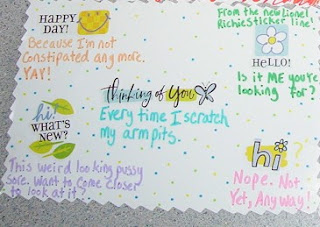 HAPPY
DAY!
Because I'm not
Constipated any more.
YAY!
From the new Lionel
Richie Sticker line!
HELLO!
Is it ME you're
looking for?
thinking of You
Every time I scratch
my armpits.
hi!
WHAT'S
NEW?
This weird looking pussy
sore. Want to come closer
to look at it?
hi
Nope. Not
Yet, Anyway!